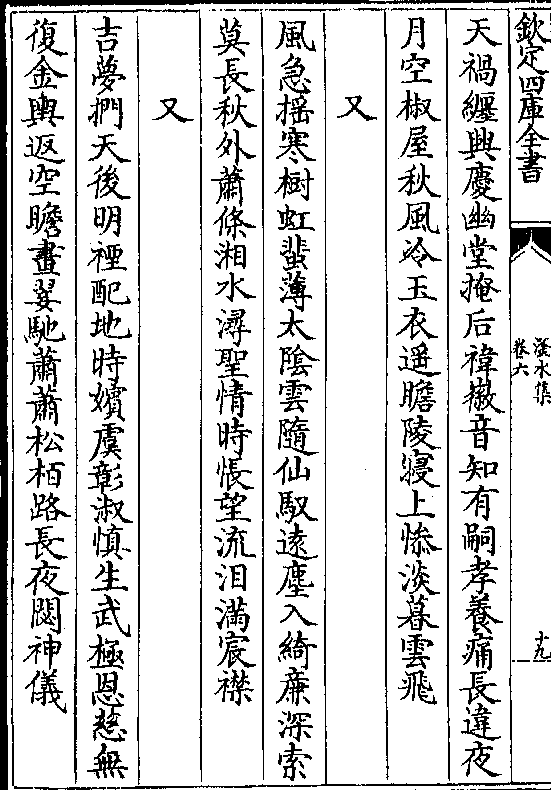 欽定四庫全書
潏水集
卷六
十九
天禍纏興慶幽堂掩后褘徽音知有嗣孝養痛長違夜
月空椒屋秋風冷玉衣遥瞻陵寢上惨淡暮雲飛
又
風急摇寒樹虹蜚薄太陰雲隨仙馭逺塵入綺㢘深索
莫長秋外蕭條湘水潯聖情時悵望流泪滿宸襟
又
吉夢捫天後明禋配地時嬪虞彰淑慎生武極恩慈無
復金輿返空瞻畫翣馳蕭蕭松栢路長夜閟神儀